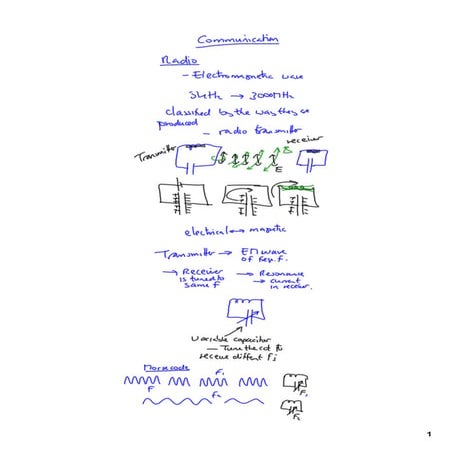 Communication
Radio
- Electromagnetic wave
3kHz → 300MHz
classified by the way they are
produced - radio transmitter
Transmitter
receiver
B
E
electrical ↔ magnetic
Transmitter → EM wave
of freq. f.
→ Receiver → Resonance
is tuned to → current
same f in receiver.
variable capacitor
- Tune the cct to
receive different f
Morse code
F
F₁
F₁
F₂
F₂
1